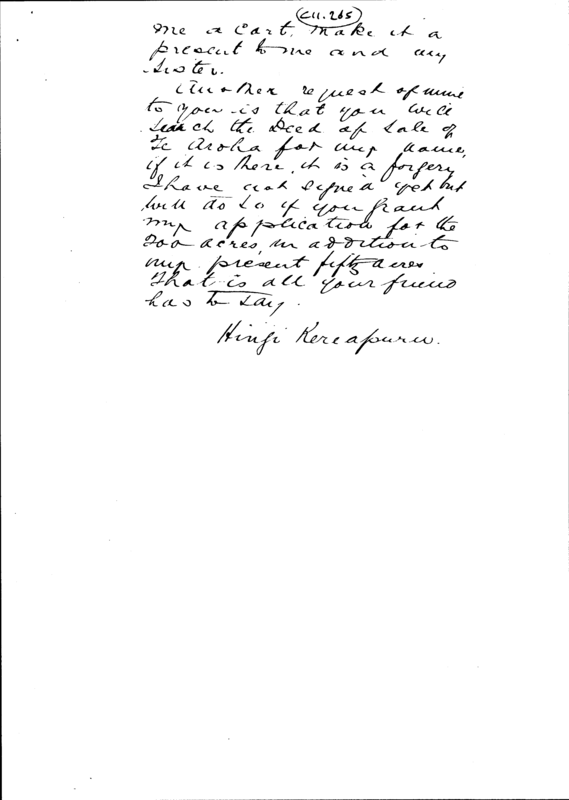 C11.265
me a Cart. Make it a
present to me and my
Sister.
Another request of mine
to you is that you will
search the Deed of Sale of
Te Aroha for my name,
if it is there, it is a forgery
I have not signed yet but
will do so if you grant
my application for the
200 acres, in addition to
my present fifty acres
That is all your friend
has to say.
Hingi Kereapuru.